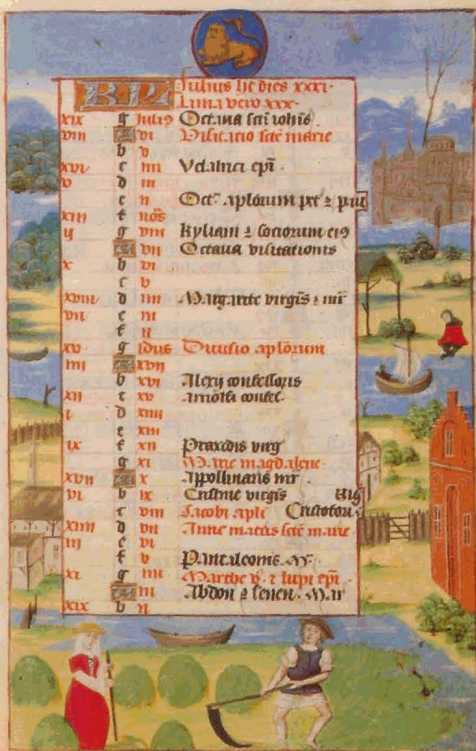 KL Julius ht dies xxxi.
Luna vero xxx.
xix g Julius Octava sci iohis
viii A vi Visitacio scte marie
b v
xvi c iiii Udalrici epi.
v d iii
e ii Oct. aplorum pet & pau
xiii f nos
ij g viii Kyliani & sociorum eius
A vii Octava visitationis
x b vi
c v
xviii d iiii Margarete virgis & mr
vii e iii
f ii
xv g idus Divisio aplorum
iiii A xvii
b xvi Alexij confessoris
xii c xv Arnolfi confes.
i d xiiii
e xiii
ix f xii Praxedis virg
g xi Marie magdalene.
xvii A x Appolinaris mr
vi b ix Cristine virgis
c viii Jacobi apli Cristofori
xiiii d vii Anne matris scte marie
iii e vi
f v Pantaleonis. M.
xi g iiii Marthe v. & lupi epi.
A iii Abdon & senen. Mar
xix b ii